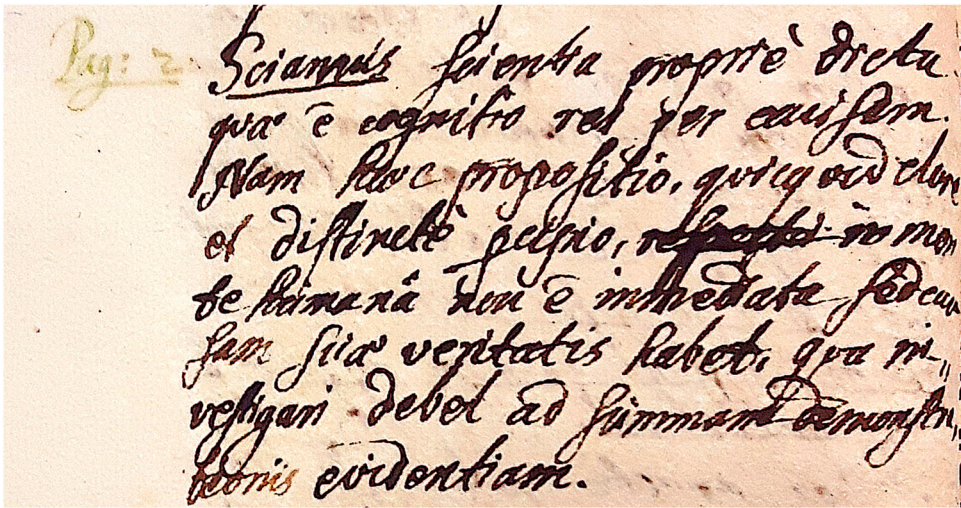 Pag: 2.
Sciamus scientia propriè dicta
quæ ē cognitio rei per caussam.
Nam hæc propositio, quicquid clare
et distinctè pcipio, in men
te humanâ non ē immediata sed cau
sam suæ veritatis habet, qua in„
vestigari debet ad summam demonstra„
tionis evidentiam.